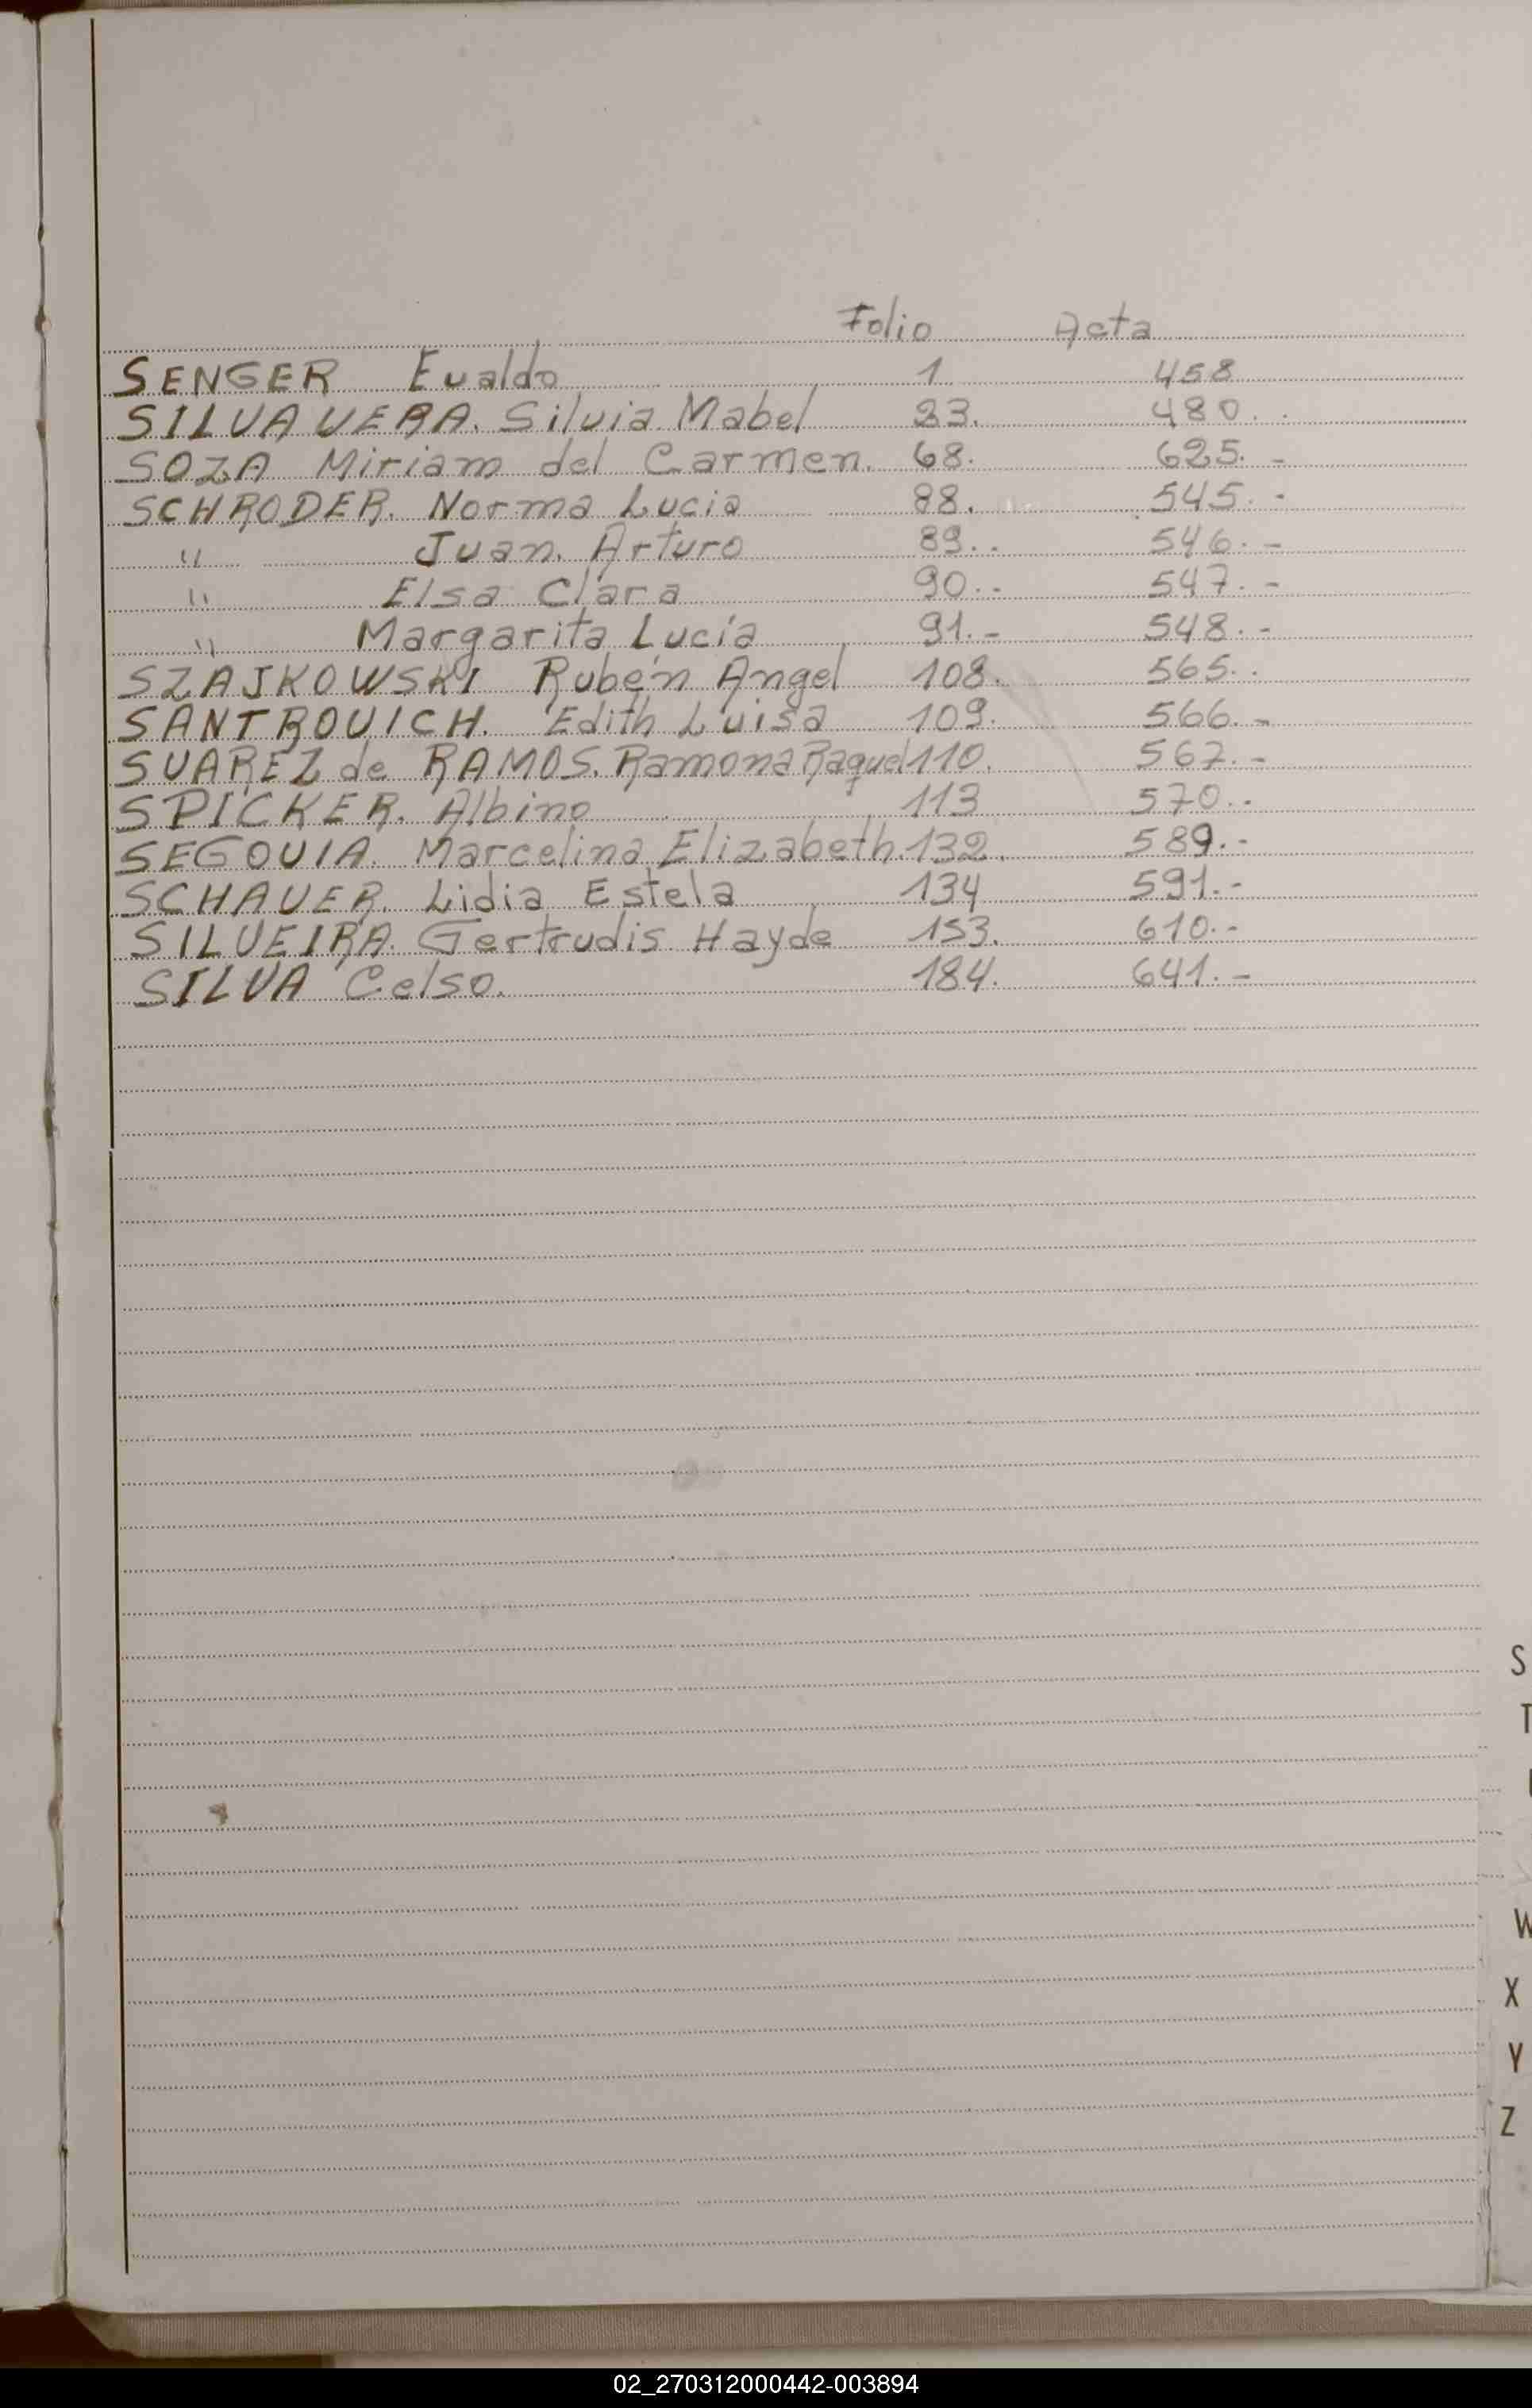 Folio Acta
SENGER Evaldo 1 458
SILVA VERA. Silvia Mabel 23. 480.
SOZA Miriam del Carmen. 68. 625. -
SCHRODER. Norma Lucia 88. 545. -
" Juan. Arturo 89.. 546. -
" Elsa Clara 90.- 547. -
" Margarita Lucía 91.- 548. -
SZAJKOWSKI Rubén Angel 108. 565..
SANTROVICH. Edith Luisa 109. 566. -
SUAREZ de RAMOS. Ramona Raquel 110. 567. -
SPICKER. Albino 113 570.-
SEGOVIA. Marcelina Elizabeth. 132. 589.-
SCHAVER. Lidia Estela 134 591.-
SILVEIRA. Gertrudis Hayde 153. 610.-
SILVA Celso. 184. 641.-
S
T
W
X
Y
Z
02_270312000442-003894